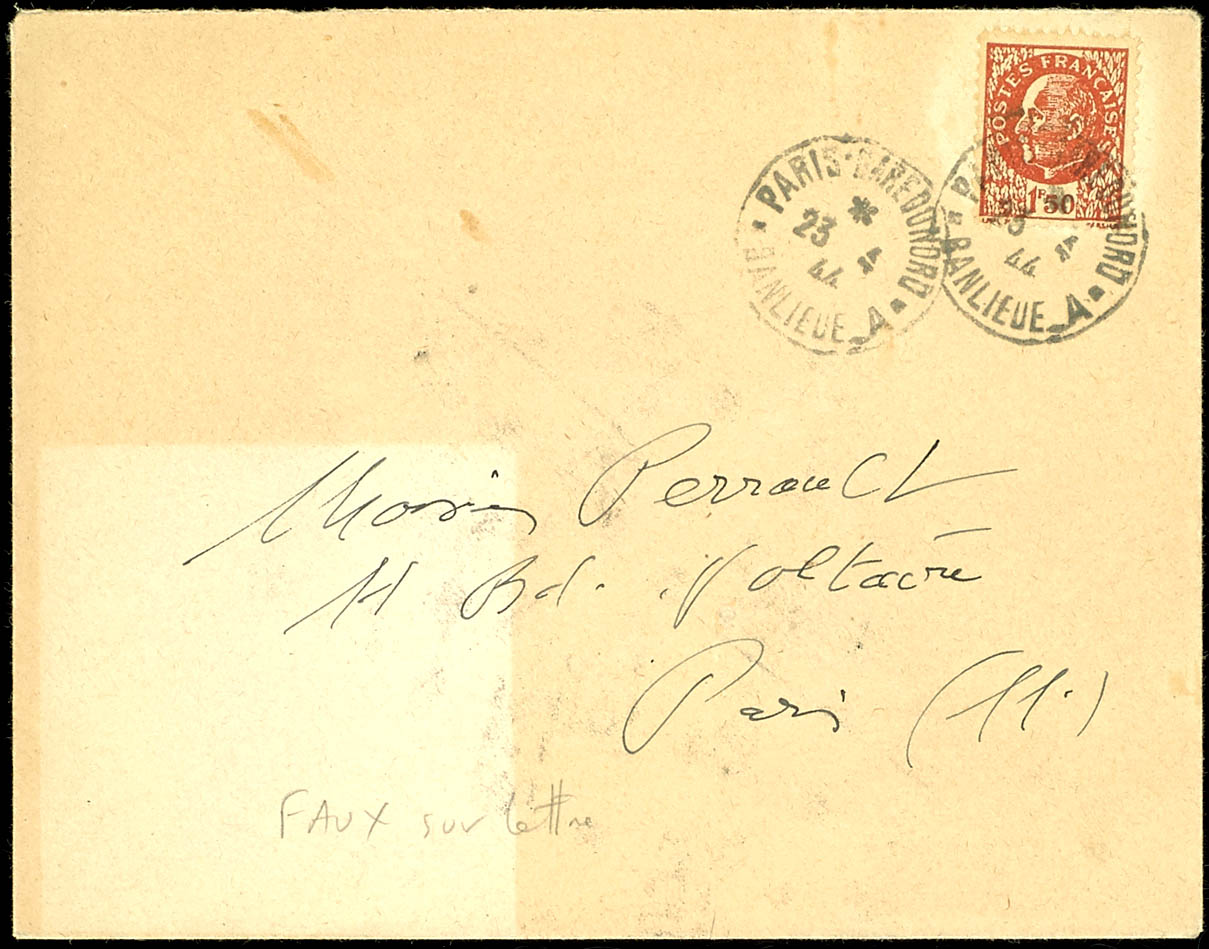 POSTES FRANÇAISES
1F50
PARIS-GARE DU NORD
*
23 -4
44
BANLIEUE_A
PARIS-GARE DU NORD
23 -4
44
BANLIEUE_A
Perrault
11 Bd. Voltaire
Paris (11e)
FAUX sur lettre